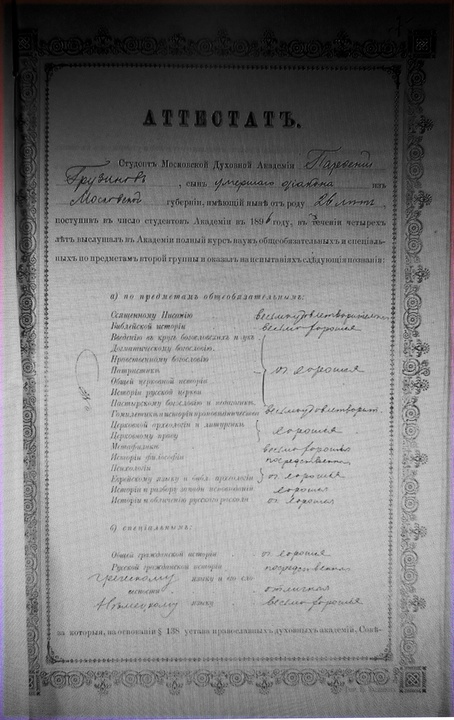 АТТЕСТАТЪ.
Студентъ Московской Духовной Академіи Парѳеній
Грузиновъ, сынъ умершаго діакона изъ
Московской губерніи, имѣющій нынѣ отъ роду 26 лѣтъ,
поступивъ въ число студентовъ Академіи въ 1896 году, въ теченіи четырехъ
лѣтъ выслушалъ въ Академіи полный курсъ наукъ общеобязательныхъ и спеціаль-
ныхъ по предметамъ второй группы и оказалъ на испытаніяхъ слѣдующія познанія:
а) по предметамъ общеобязательнымъ:
Священному Писанію весьма удовлетворительныя
Библейской исторіи весьма хорошія
Введенію въ кругъ богословскихъ наукъ
Догматическому богословію.
Нравственному богословію
Патристикѣ оч. хорошія
Общей церковной исторіи
Исторіи русской церкви
Пастырскому богословію и педагогикѣ
Гомилетикѣ и исторіи проповѣдничества весьма удовлетворит.
Церковной археологіи и литургикѣ хорошія
Церковному праву
Метафизикѣ весьма хорошія
Исторіи философіи посредственныя
Психологіи
Еврейскому языку и библ. археологіи оч. хорошія
Исторіи и разбору западн. исповѣданій хорошія
Исторіи и обличенію русскаго раскола оч. хорошія
б) спеціальнымъ:
Общей гражданской исторіи оч. хорошія
Русской гражданской исторіи посредственныя
Греческому языку и его сло-
весности отличныя
Нѣмецкому языку весьма хорошія
за которыя, на основаніи § 138 устава православныхъ духовныхъ академій, Совѣ-